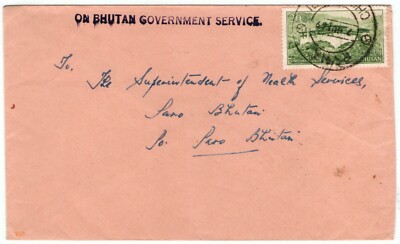 ON BHUTAN GOVERNMENT SERVICE.
BHUTAN
To,
The Superintendent of Health Services,
Paro Bhutan
Po. Paro Bhutan.